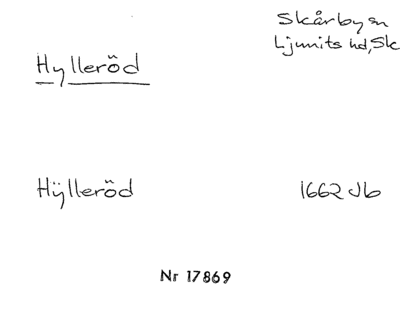 Skårby sn
Ljunits hd, Sk
Hylleröd
Hÿlleröd 1662 Jb
Nr 17869